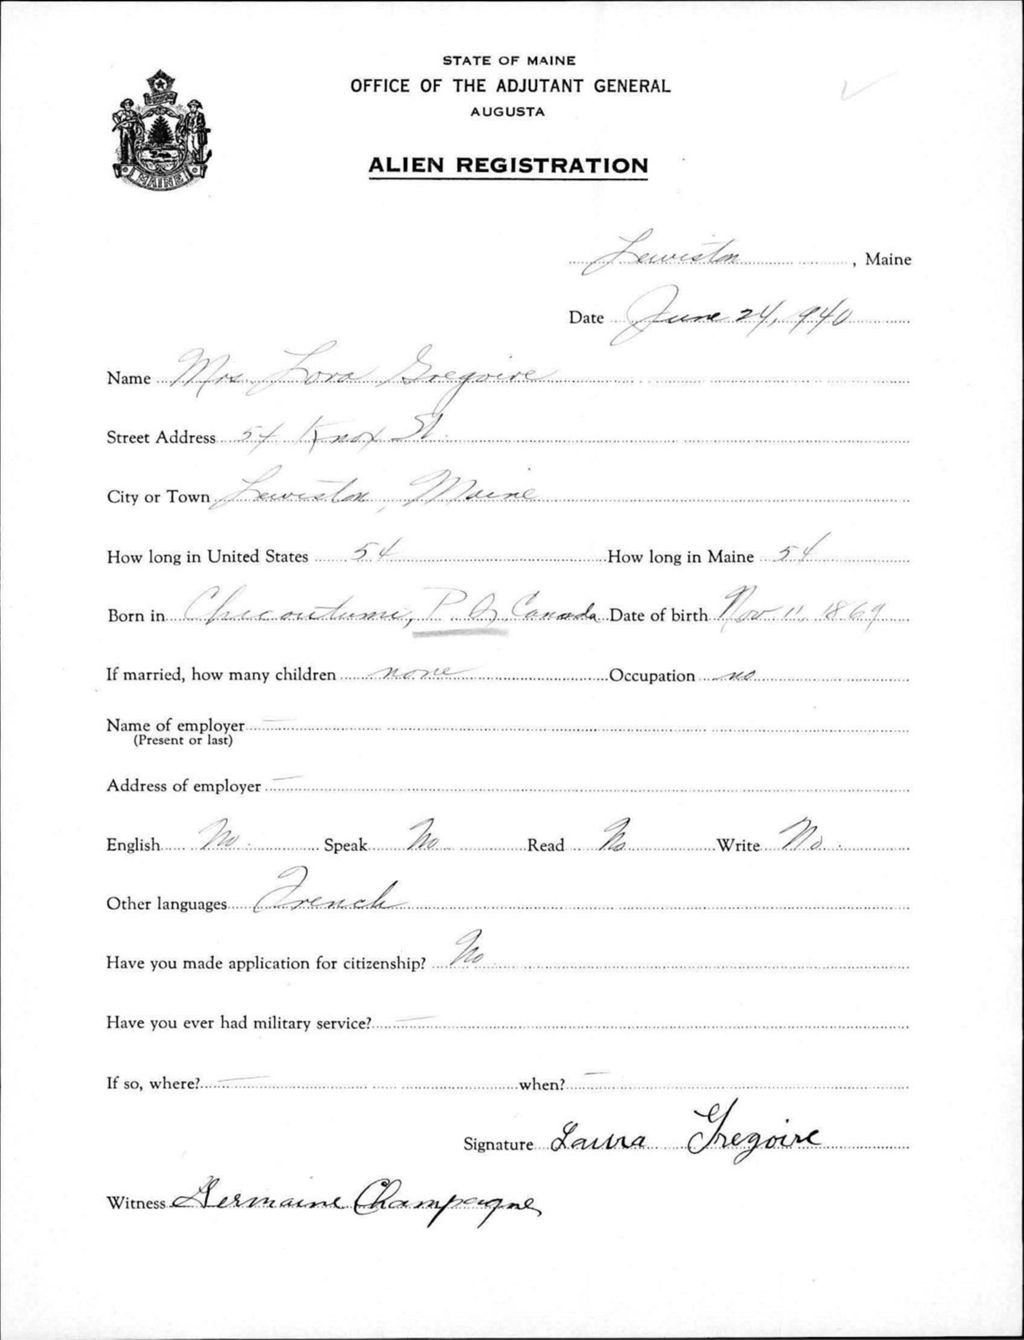 STATE OF MAINE
OFFICE OF THE ADJUTANT GENERAL
AUGUSTA
ALIEN REGISTRATION
MAINE
Lewiston, Maine
Date June 24, 1940
Name Mrs. Lora Gregoire
Street Address 54 Knox St.
City or Town Lewiston, Maine
How long in United States 54 How long in Maine 54
Born in Checoutumi, P. Q. Canada Date of birth Nov 11, 1869
If married, how many children none Occupation no
Name of employer —
(Present or last)
Address of employer —
English No Speak No Read No Write No
Other languages French
Have you made application for citizenship? No
Have you ever had military service? —
If so, where? — when? —
Signature Laura Gregoire
Witness Germaine Champagne